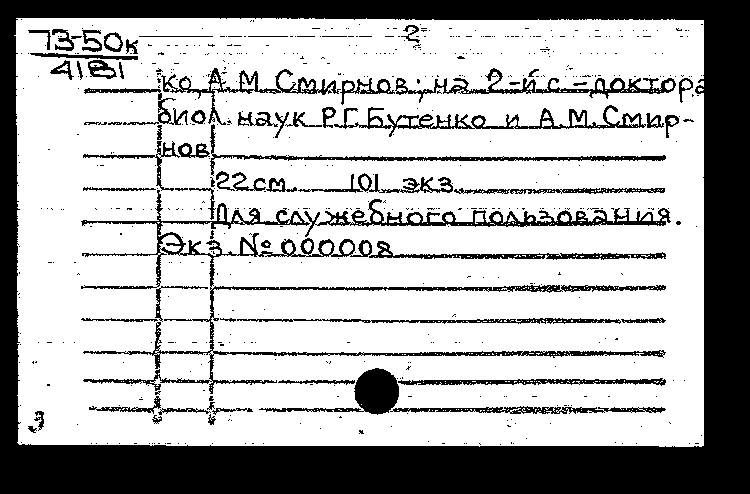 2
73-50к
4181
ко, А.М Смирнов; на 2-й с =доктора
биол. наук Р.Г.Бутенко и А.М.Смир-
нов
22см 101 экз
Для служебного пользования.
Экз. № 000008
3